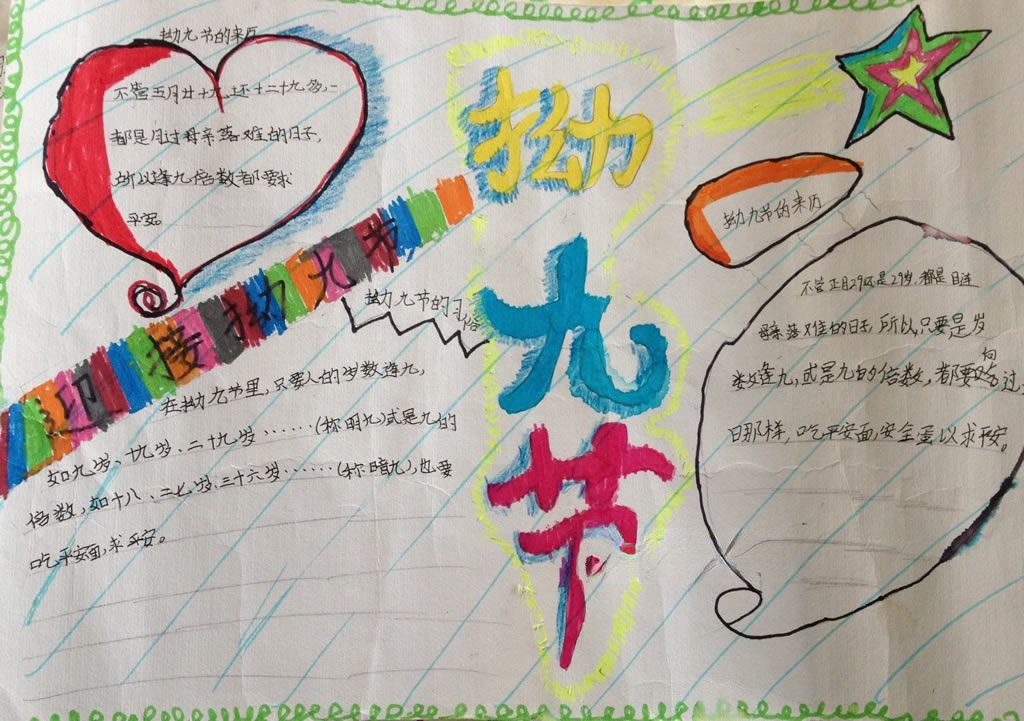 拗九节的来历
不管正月廿十九还十二十九岁,
都是月过母亲落难的日子,
所以逢九倍数者都要求
平安
拗九节
迎接拗九节
拗九节的习俗
在拗九节里,只要人的岁数逢九,
如九岁、十九岁、二十九岁……(称明九)或是九的
倍数,如十八、二七岁、三十六岁……(称暗九),也要
吃平安面,求平安。
拗九节的来历
不管正月29还是29岁,都是目连
母亲落难的日子,所以,只要是岁
数逢九,或是九的倍数,都要向过
日那样,吃平安面,安全蛋以求平安。